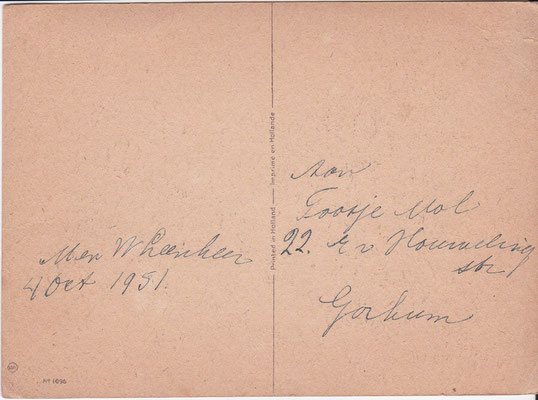 Men W Leenheer
4 Oct 1951.
Printed in Holland — Imprimé en Hollande
Aan
Toosje Mol
22. str
Gorkum
Nº 1696